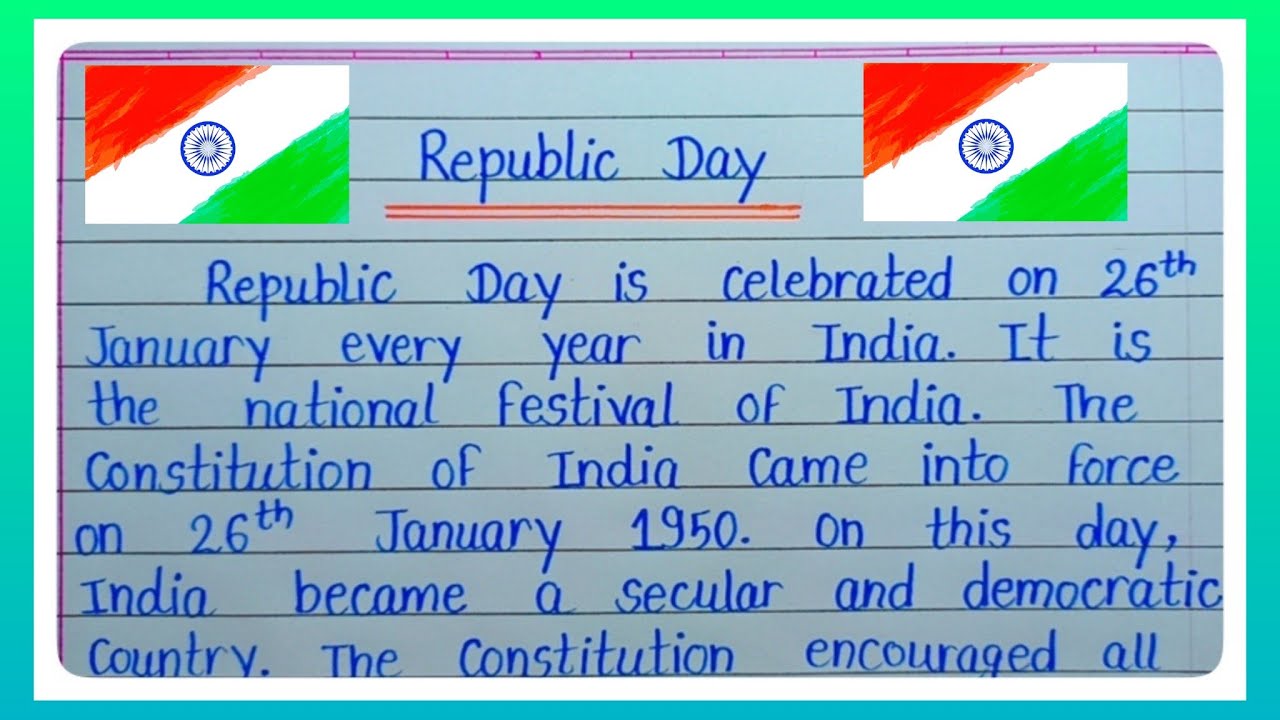 Republic Day
Republic Day is celebrated on 26th
January every year in India. It is
the national festival of India. The
Constitution of India came into force
on 26th January 1950. on this day,
India became a secular and democratic
Country. The Constitution encouraged all